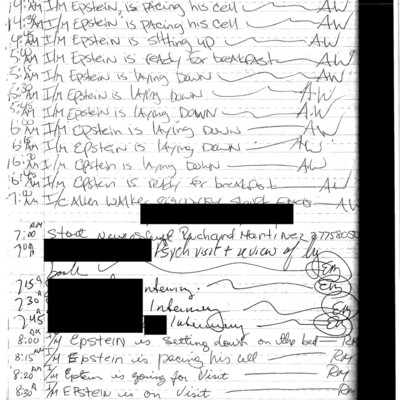 I/M Epstein is pacing his cell AW
I/M Epstein is pacing his cell AW
4:45 AM I/M Epstein is sitting up AW
5:00 AM I/M Epstein is ready for breakfast AW
5:15 AM I/M Epstein is laying down AW
5:30 AM I/M Epstein is laying down AW
5:45 AM I/M Epstein is laying down AW
6:00 AM I/M Epstein is laying down AW
6:15 AM I/M Epstein is laying down AW
6:30 AM I/M Epstein is laying down AW
6:45 AM I/M Epstein is ready for breakfast AW
7:00 AM I/C Allen Walker AW
7:00 AM Start Richard Martinez
Psych visit & review of
book EM
7:15 A Interview EM
7:30 A Interview EM
7:45 A Interview EM
8:00 AM I/M Epstein is setting down on the bed RM
8:15 AM I/M Epstein is pacing his cell RM
8:20 A I/M Epstein is going for visit RM
8:30 A I/M Epstein is on visit RM